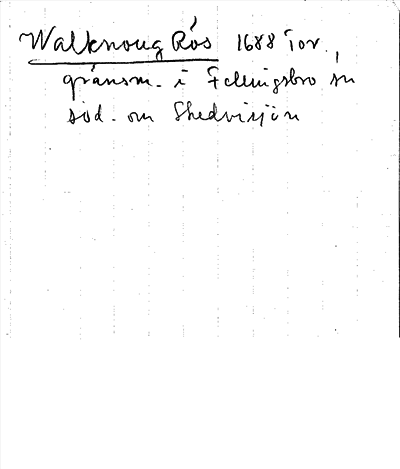 Walknoug Rós 1688 Jor.
gränsm. i Fellingsbro sn
söd. om Skedvisjön